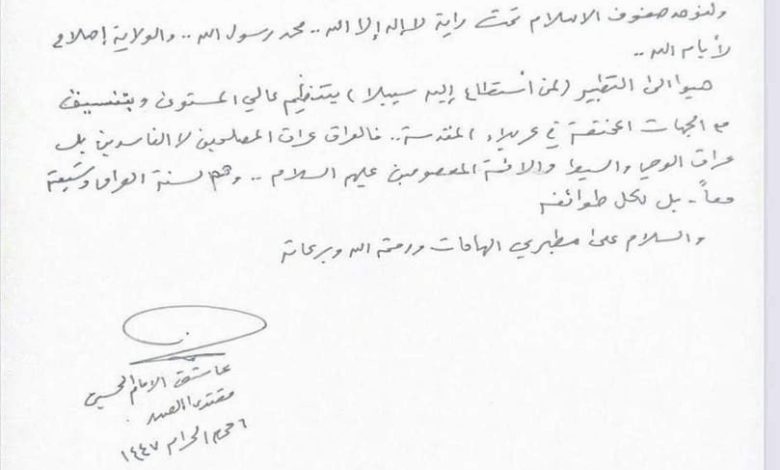 ولنوحد صفوف الاسلام تحت راية لا إله إلا الله .. محمد رسول الله .. والولاية إصلاحي
لأيام الله ..
هبوا الى التطبير (لمن أستطاع إليه سبيلا) بتنظيم عالي المستوى وبتنسيق
مع الجهات المختصة في كربلاء المقدسة .. فالعراق عراق المصلحين لا الفاسدين بل
عراق الوصي والسبط والائمة المعصومين عليهم السلام .. وهم لسنة العراق وشيعته
معاً - بل لكل طوائفه
والسلام على مطبري الهامات ورحمة الله وبركاته
عاشق الامام الحسين
مقتدى الصدر
٦ محرم الحرام ١٤٤٧